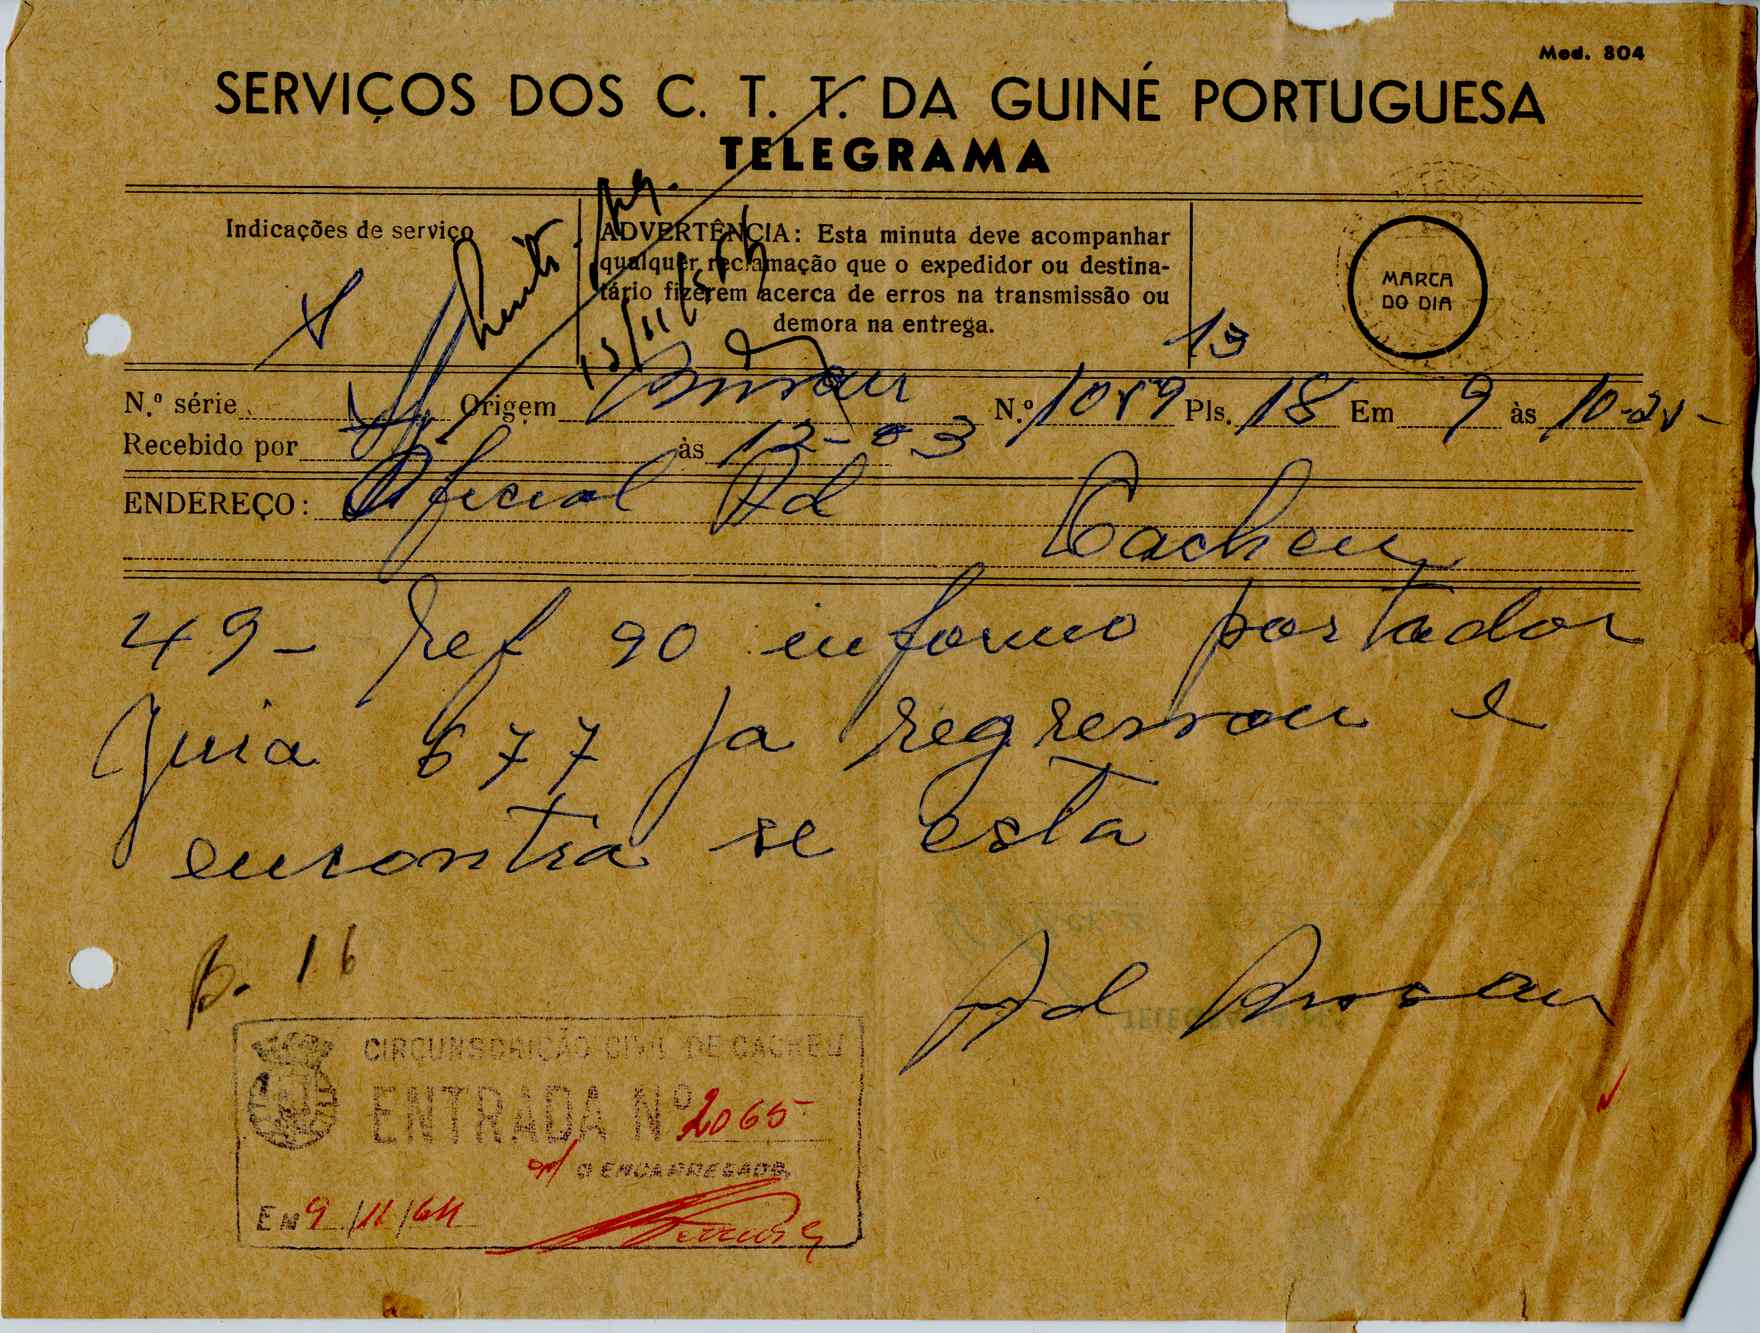 Mod. 804
SERVIÇOS DOS C. T. T. DA GUINÉ PORTUGUESA
TELEGRAMA
Indicações de serviço
ADVERTÊNCIA: Esta minuta deve acompanhar
qualquer reclamação que o expedidor ou destina-
tário fizerem acerca de erros na transmissão ou
demora na entrega.
MARCA
DO DIA
13
N.º série Origem Bissau N.º 1089 Pls. 18 Em 9 às 10-20-
Recebido por às 12-03
ENDEREÇO: Oficial Ad Cacheu
49- Ref 90 informo portador
guia 677 ja regressou e
encontra se esta
Ad Bissau
B. 16
CIRCUNSCRIÇÃO CIVIL DE CACHEU
ENTRADA Nº 2065
O ENCARREGADO,
EM 9/11/64